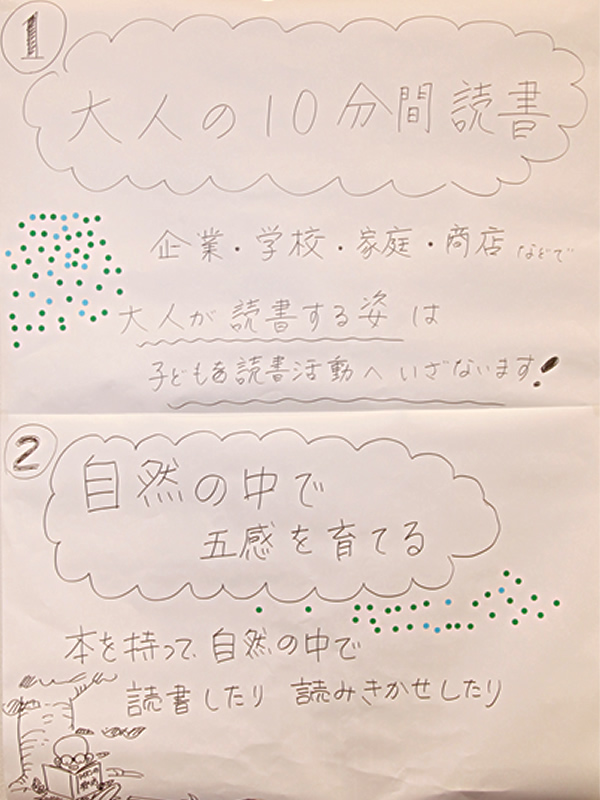 1
大人の10分間読書
企業・学校・家庭・商店などで
大人が読書する姿は
子どもを読書活動へいざないます!
2
自然の中で
五感を育てる
本を持って、自然の中で
読書したり 読みきかせしたり